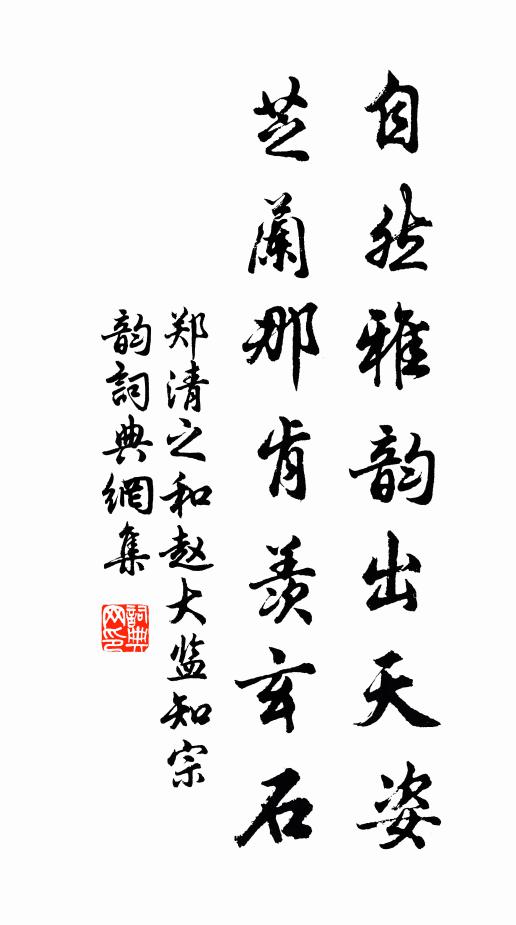 自然雅韵出天姿
芝蘭那肯羡玄石
郑清之和赵大监知宗
韵詞典網集
詞典
网印